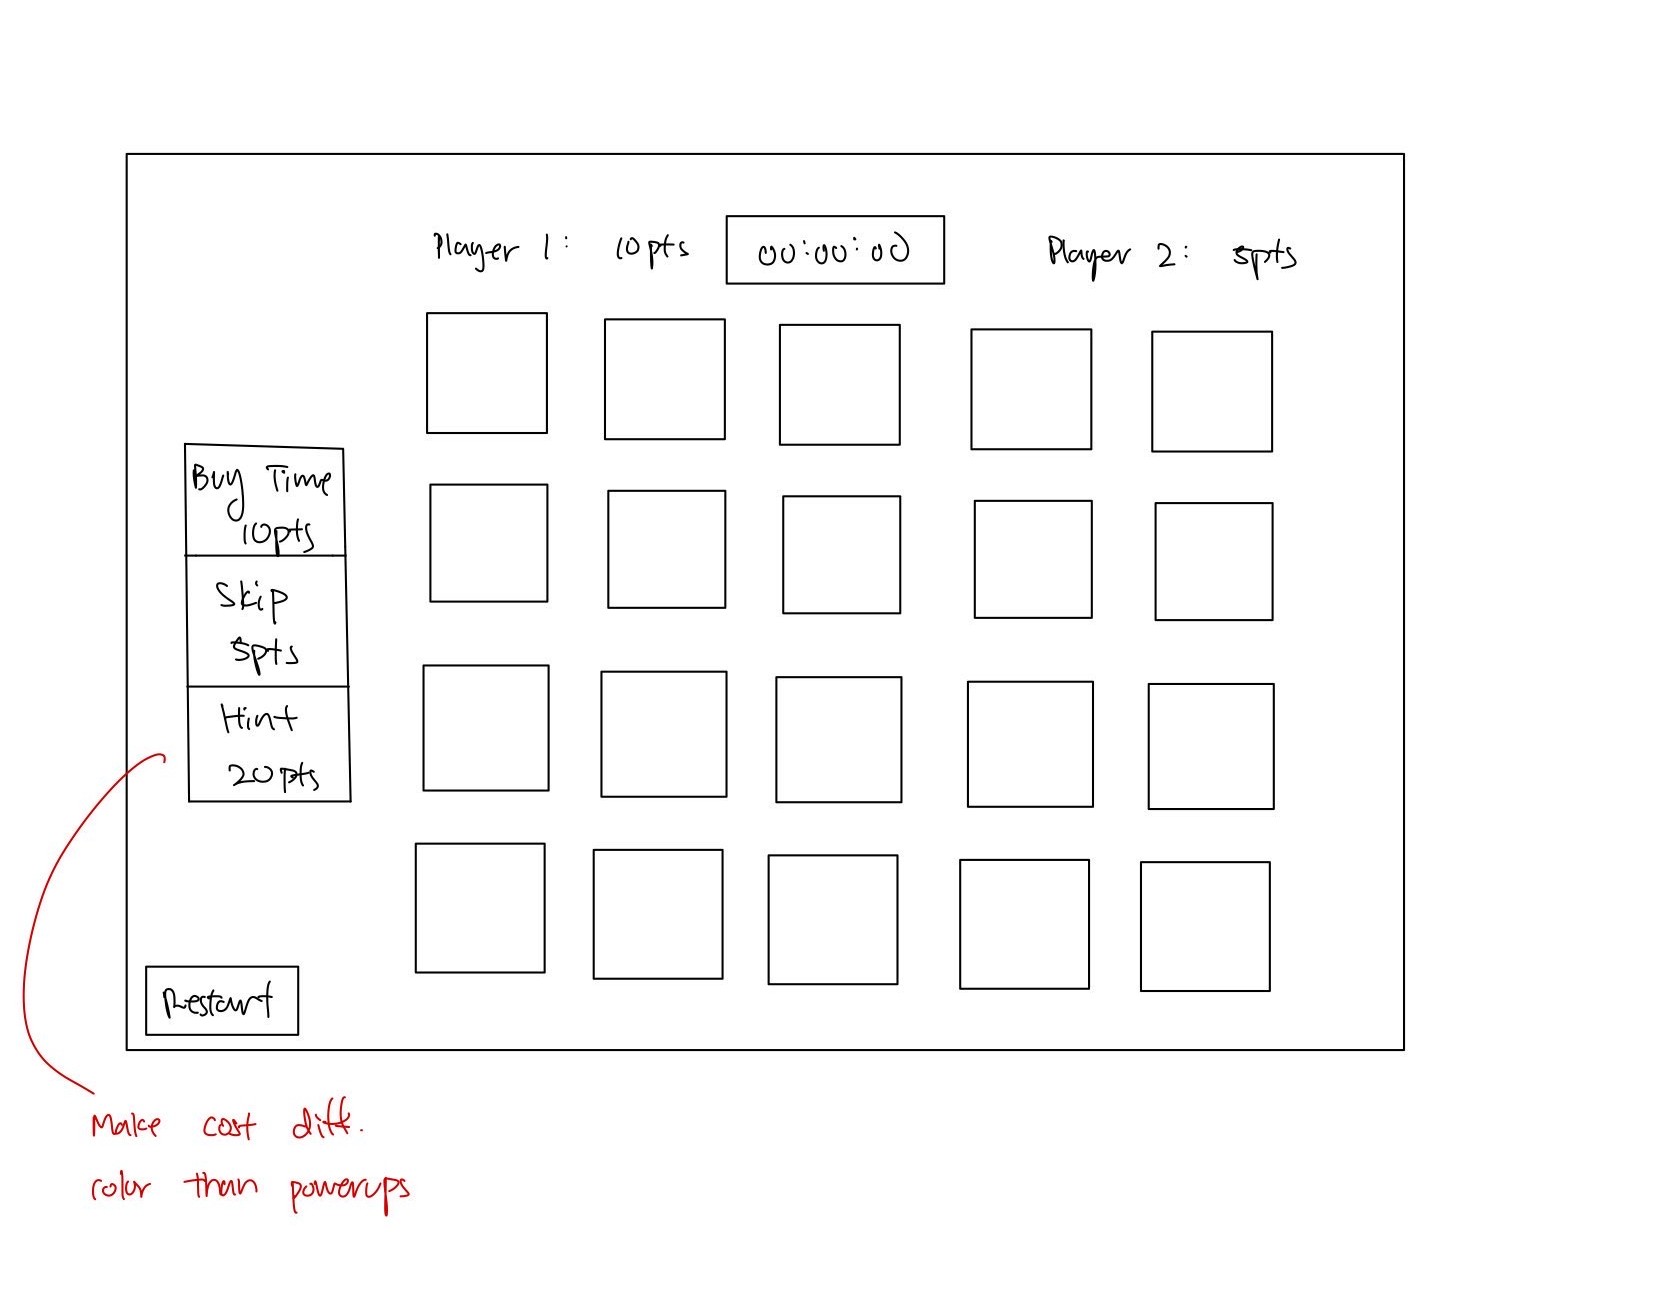 Player 1: 10pts 00:00:00 Player 2: 5pts
Buy Time
10pts
Skip
5pts
Hint
20pts
Restart
Make cost diff.
color than powerups